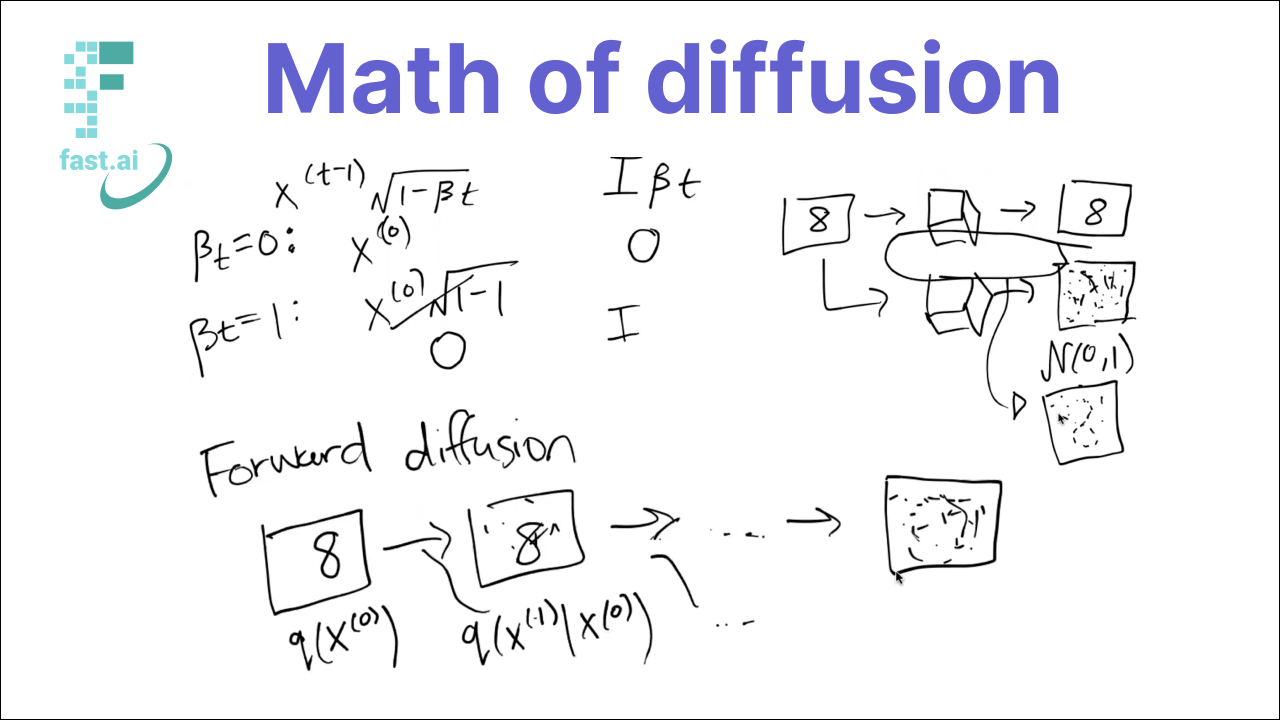 Math of diffusion
fast.ai
x^(t-1) √(1-βt) Iβt
βt=0: x^(0) 0
βt=1: x^(0) √(1-1) I
0
8 → → 8
N(0,1)
Forward diffusion
8 → 8 → ... →
q(x^(0)) q(x^(1)|x^(0)) ...